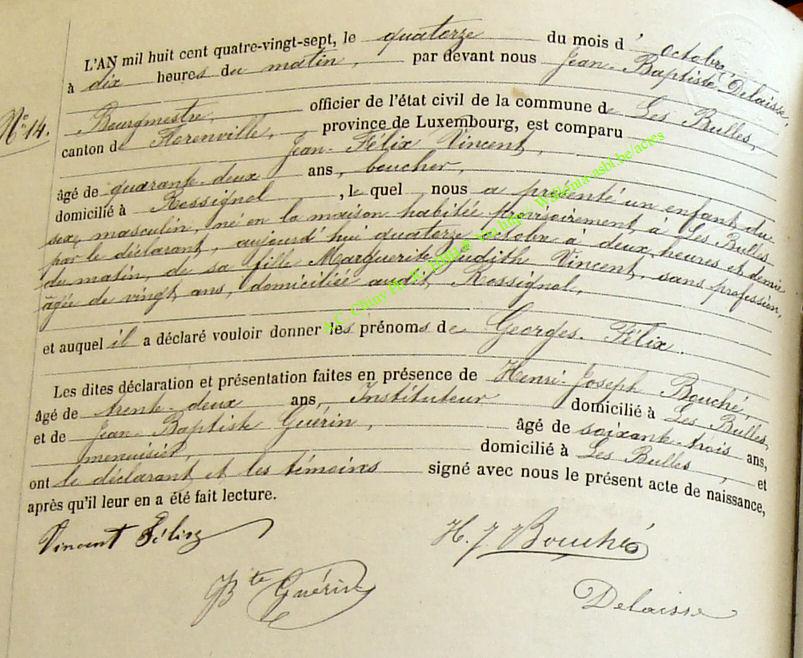 L'AN mil huit cent quatre-vingt-sept, le quatorze du mois d'octobre
à dix heures du matin, par devant nous Jean-Baptiste Delaisse,
N° 14.
Bourgmestre, officier de l'état civil de la commune de Les Bulles,
canton de Florenville, province de Luxembourg, est comparu
Jean-Félix Vincent,
âgé de quarante-deux ans, boucher,
domicilié à Rossignol, lequel nous a présenté un enfant du
sexe masculin, né en la maison habitée provisoirement à Les Bulles
par le déclarant, aujourd'hui quatorze octobre à deux heures et demie
du matin, de sa fille Marguerite Judith Vincent, sans profession,
âgée de vingt ans, domiciliée audit Rossignol,
et auquel il a déclaré vouloir donner les prénoms de Georges-Félix.
Les dites déclaration et présentation faites en présence de Henri-Joseph Bouché,
âgé de trente-deux ans, Instituteur domicilié à Les Bulles,
et de Jean-Baptiste Guérin, âgé de soixante-trois ans,
menuisier, domicilié à Les Bulles, et
ont le déclarant et les témoins signé avec nous le présent acte de naissance,
après qu'il leur en a été fait lecture.
Vincent Félix
H. J. Bouché
Bte Guérin
Delaisse